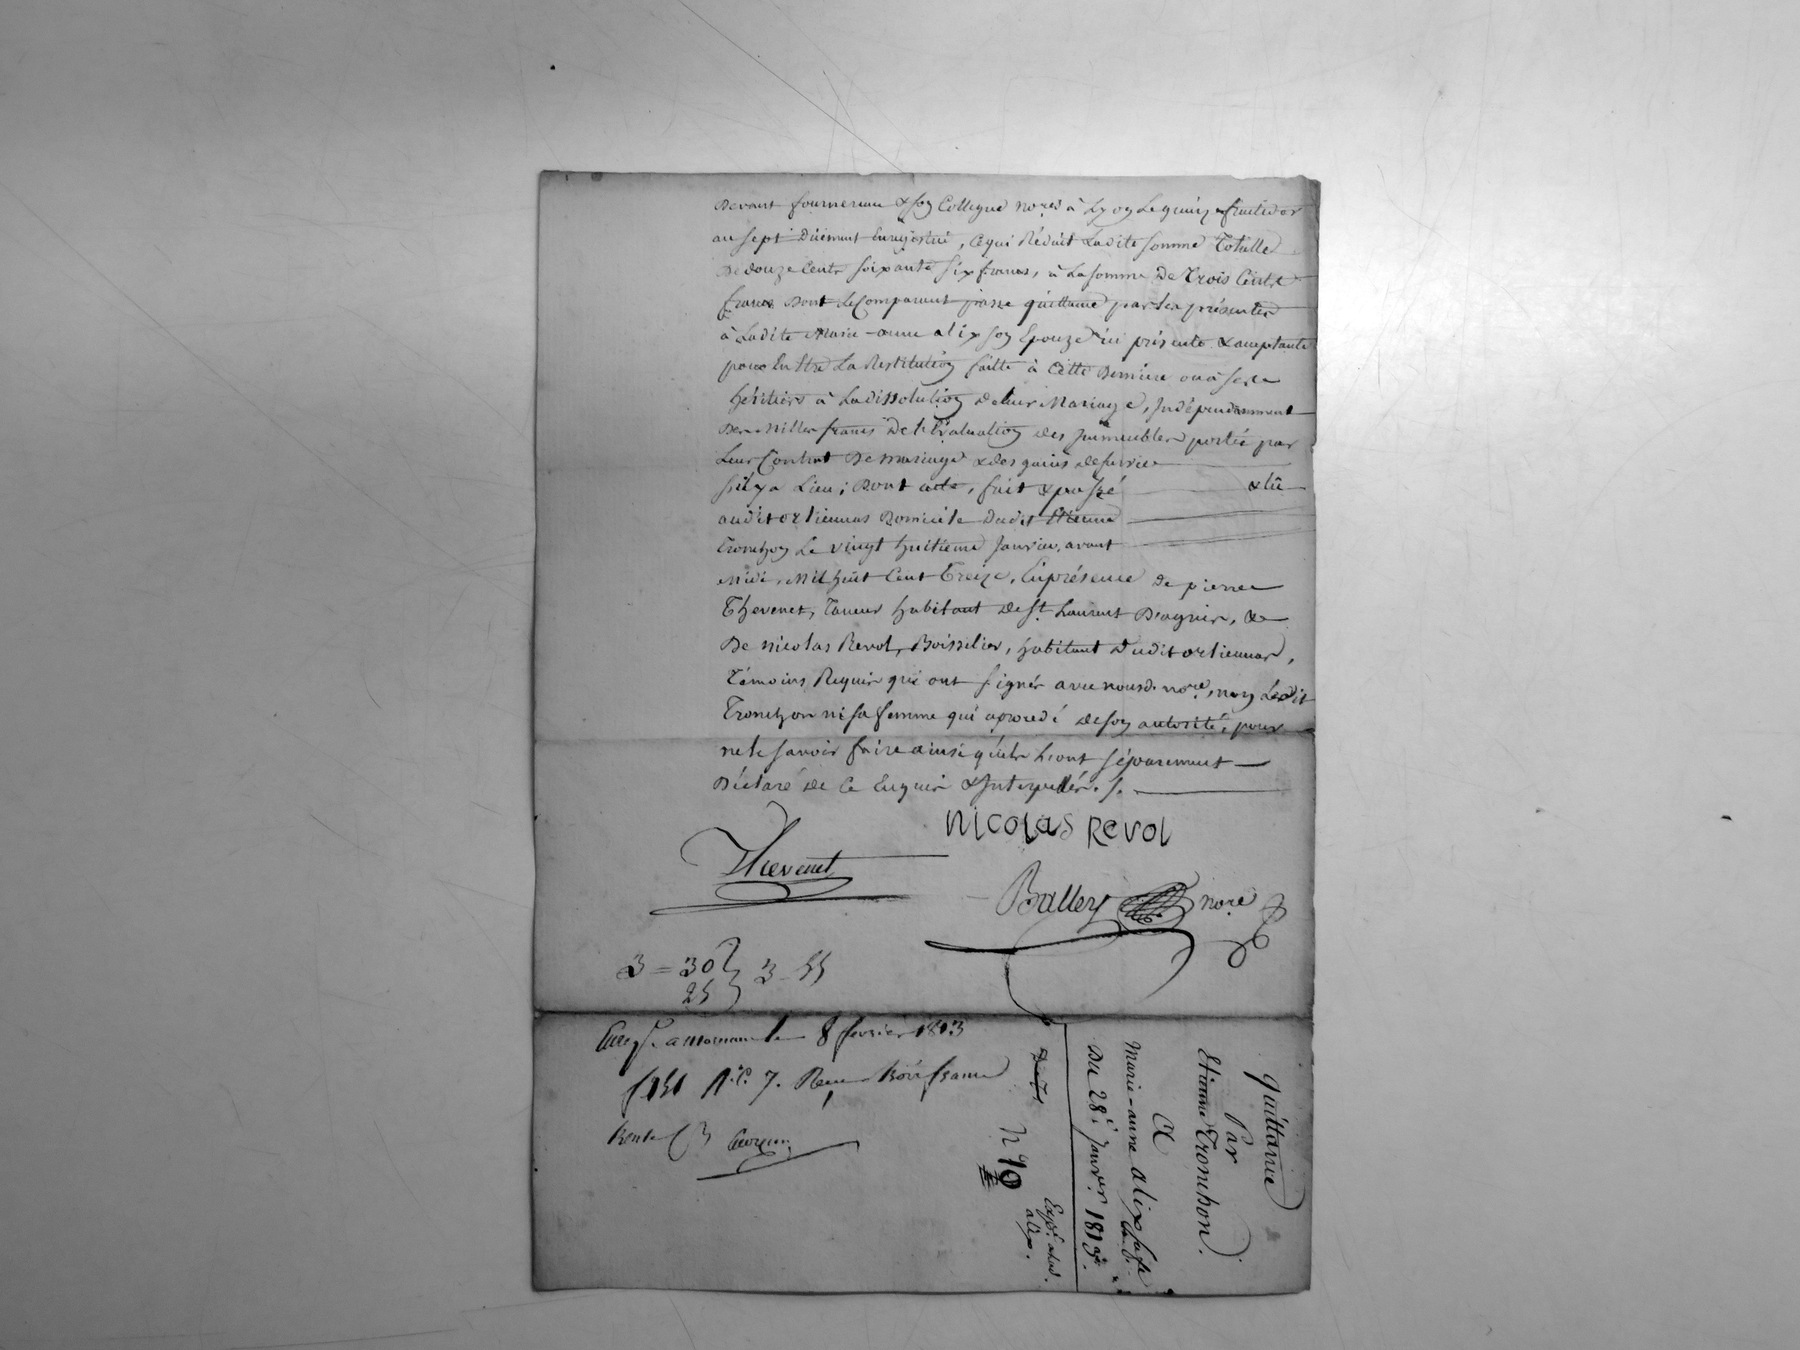 Devant fournereau & son Collegue no.res à Lyon Le quinze fructidor
an sept Dûement Enregistré, Ce qui Réduit Ladite somme Totalle
De douze Cents soixante six francs, à La somme De Trois Cents
francs Dont Le Comparant passe quittance par les présentes
à Ladite Marie-anne alix son Epouze ici présente & acceptante
pour En Etre La Restitution faitte à Cette Derniere ou à ses
héritiers à La dissolution de leur Mariage, Indépendamment
Des Mille francs De l'Evaluation des Immeubles portée par
Leur Contrat De mariage & des gains de survie
s'il y a Lieu; Dont acte, fait & passé & lû
audit orliennas Domicile Dudit Etienne
Tronchon Le vingt huitieme Janvier, avant
Midi, Mil huit Cent Treize, En présence de pierre
Thevenet, Taneur habitant de St. Laurent D'agnir, &
De nicolas Revol, Boisselier, habitant Dudit orliennas,
Témoins Requis qui ont signés avec nousd. no.re, non Ledit
Tronchon ni sa femme qui a procedé de son autorité, pour
ne le savoir faire ainsi qu'ils L'ont séparement
Déclaré de Ce Enquis & Interpellés. /.
Thevenet
nicolas Revol
Balley no.re
3 = 30 } 3 - 55
25
Enreg.é a mornant le 8 fevrier 1813
f.° 151 R.° C. 7. Reçu trois francs
trente C
quittance
Par
Etienne Tronchon.
A
Marie-anne alix sa fe
Du 28.e Janvier 1813.
n.° 10
Exp.é alad.
alix.